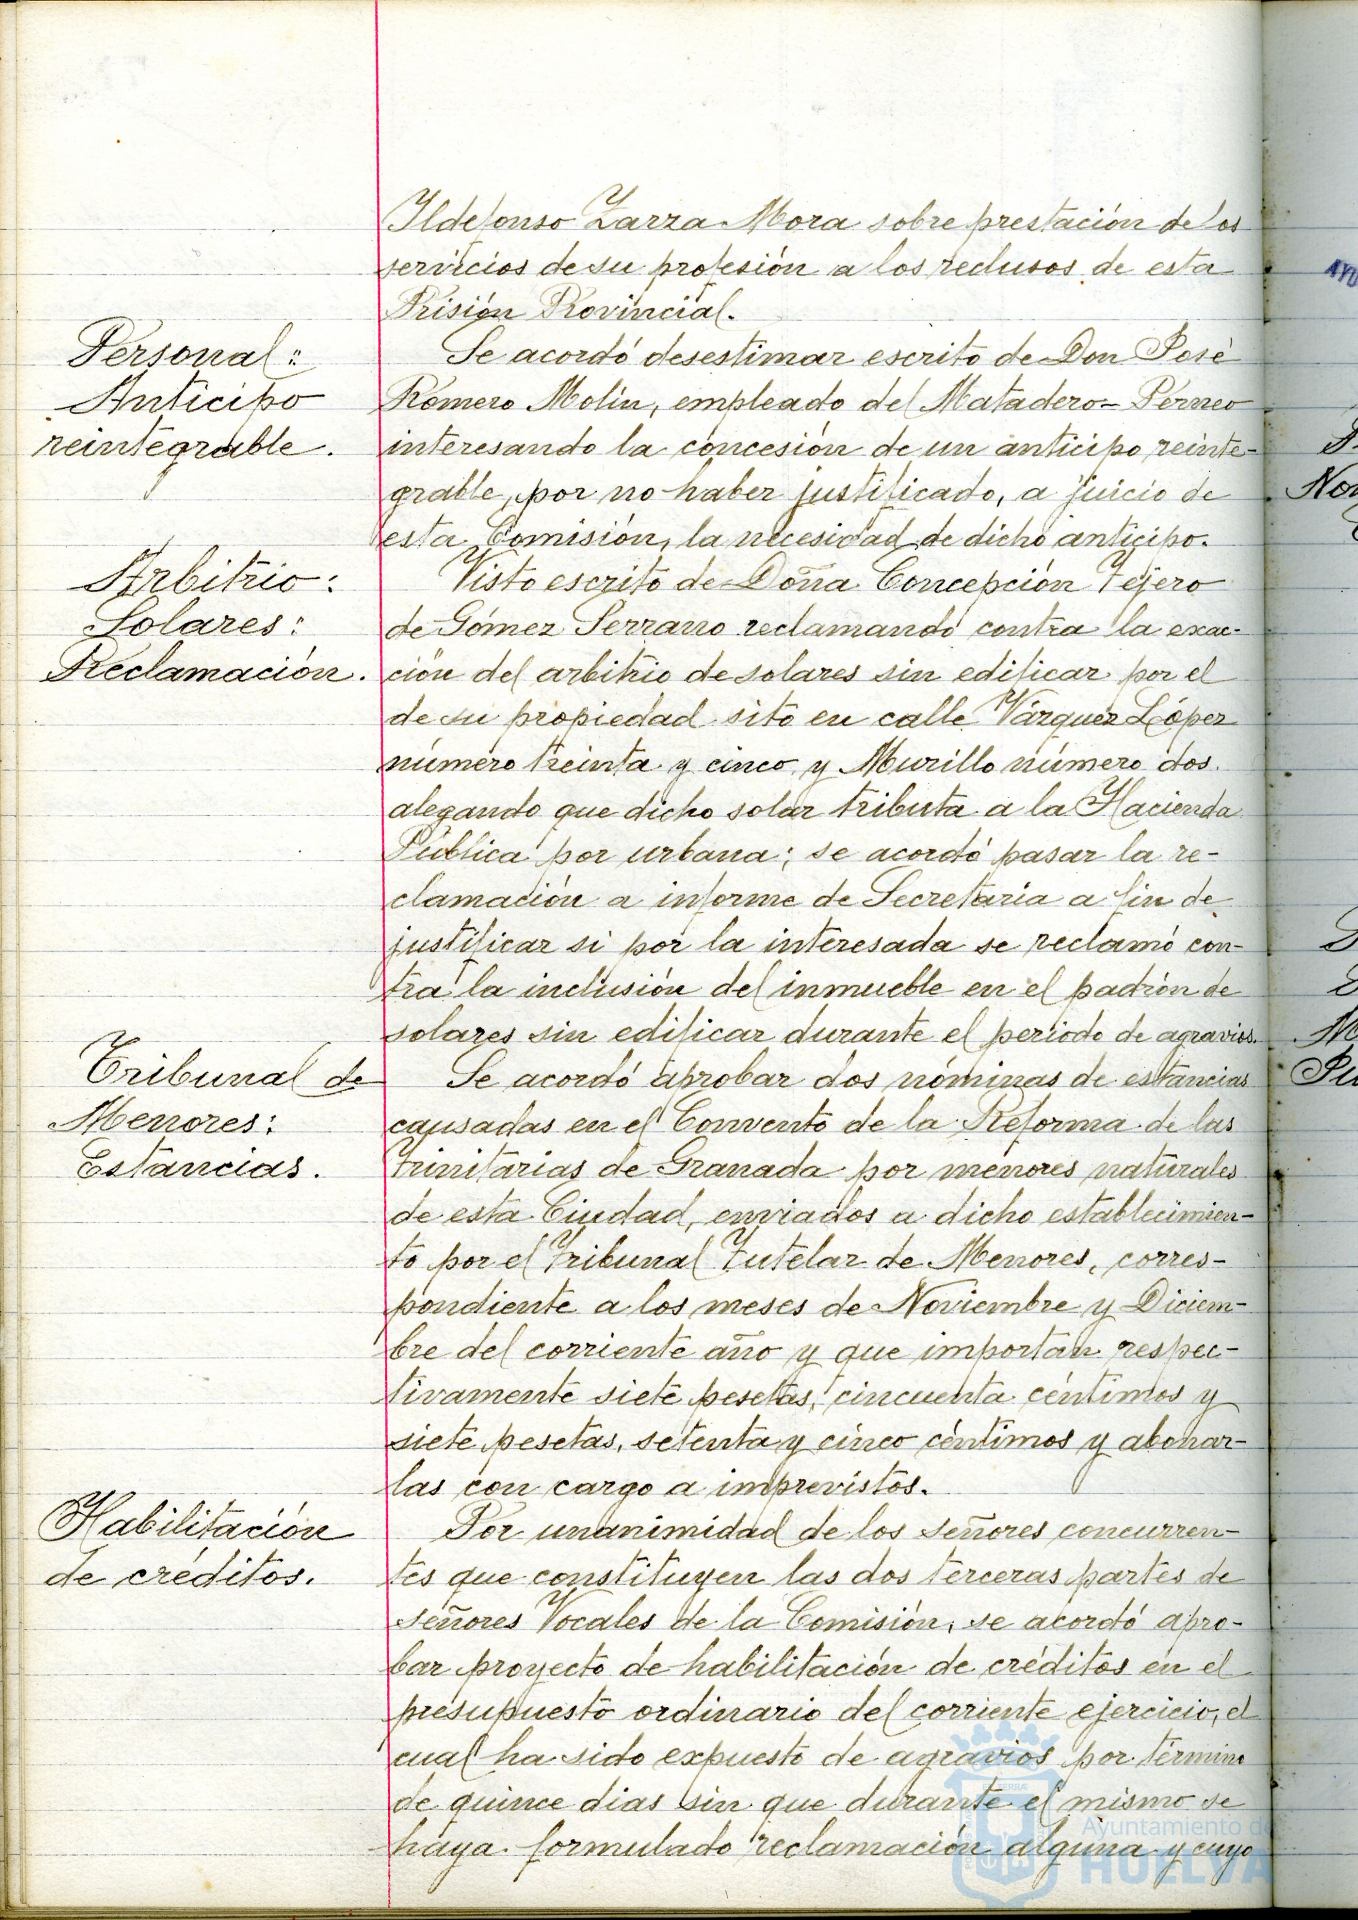 Ildefonso Zarza Mora sobre prestación de los
servicios de su profesión a los reclusos de esta
Prisión Provincial.
Personal:
Anticipo
reintegrable.
Se acordó desestimar escrito de Don José
Romero Molín, empleado del Matadero-Pérneo
interesando la concesión de un anticipo reinte-
grable, por no haber justificado, a juicio de
esta Comisión, la necesidad de dicho anticipo.
Arbitrio:
Solares:
Reclamación.
Visto escrito de Doña Concepción Tejero
de Gómez Serrano reclamando contra la exac-
ción del arbitrio de solares sin edificar por el
de su propiedad sito en calle Vázquez López
número treinta y cinco y Murillo número dos.
alegando que dicho solar tributa a la Hacienda
Pública por urbana; se acordó pasar la re-
clamación a informe de Secretaría a fin de
justificar si por la interesada se reclamó con-
tra la inclusión del inmueble en el padrón de
solares sin edificar durante el período de agravios.
Tribunal de
Menores:
Estancias.
Se acordó aprobar dos nóminas de estancias
causadas en el Convento de la Reforma de las
Trinitarias de Granada por menores naturales
de esta Ciudad, enviados a dicho establecimien-
to por el Tribunal Tutelar de Menores, corres-
pondiente a los meses de Noviembre y Diciem-
bre del corriente año y que importan respec-
tivamente siete pesetas, cincuenta céntimos y
siete pesetas, setenta y cinco céntimos y abonar-
las con cargo a imprevistos.
Habilitación
de créditos.
Por unanimidad de los señores concurren-
tes que constituyen las dos terceras partes de
señores Vocales de la Comisión, se acordó apro-
bar proyecto de habilitación de créditos en el
presupuesto ordinario del corriente ejercicio, el
cual ha sido expuesto de agravios por término
de quince dias sin que durante el mismo se
haya formulado reclamación alguna y cuyo
Ayuntamiento de
HUELVA